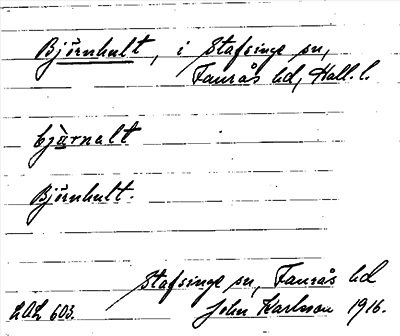 Björnhult, i Stafsinge sn,
Faurås hd, Hall. l.
bjàrnalt
Björnhult.
Stafsinge sn, Faurås hd
LAL 603. John Karlsson 1916.